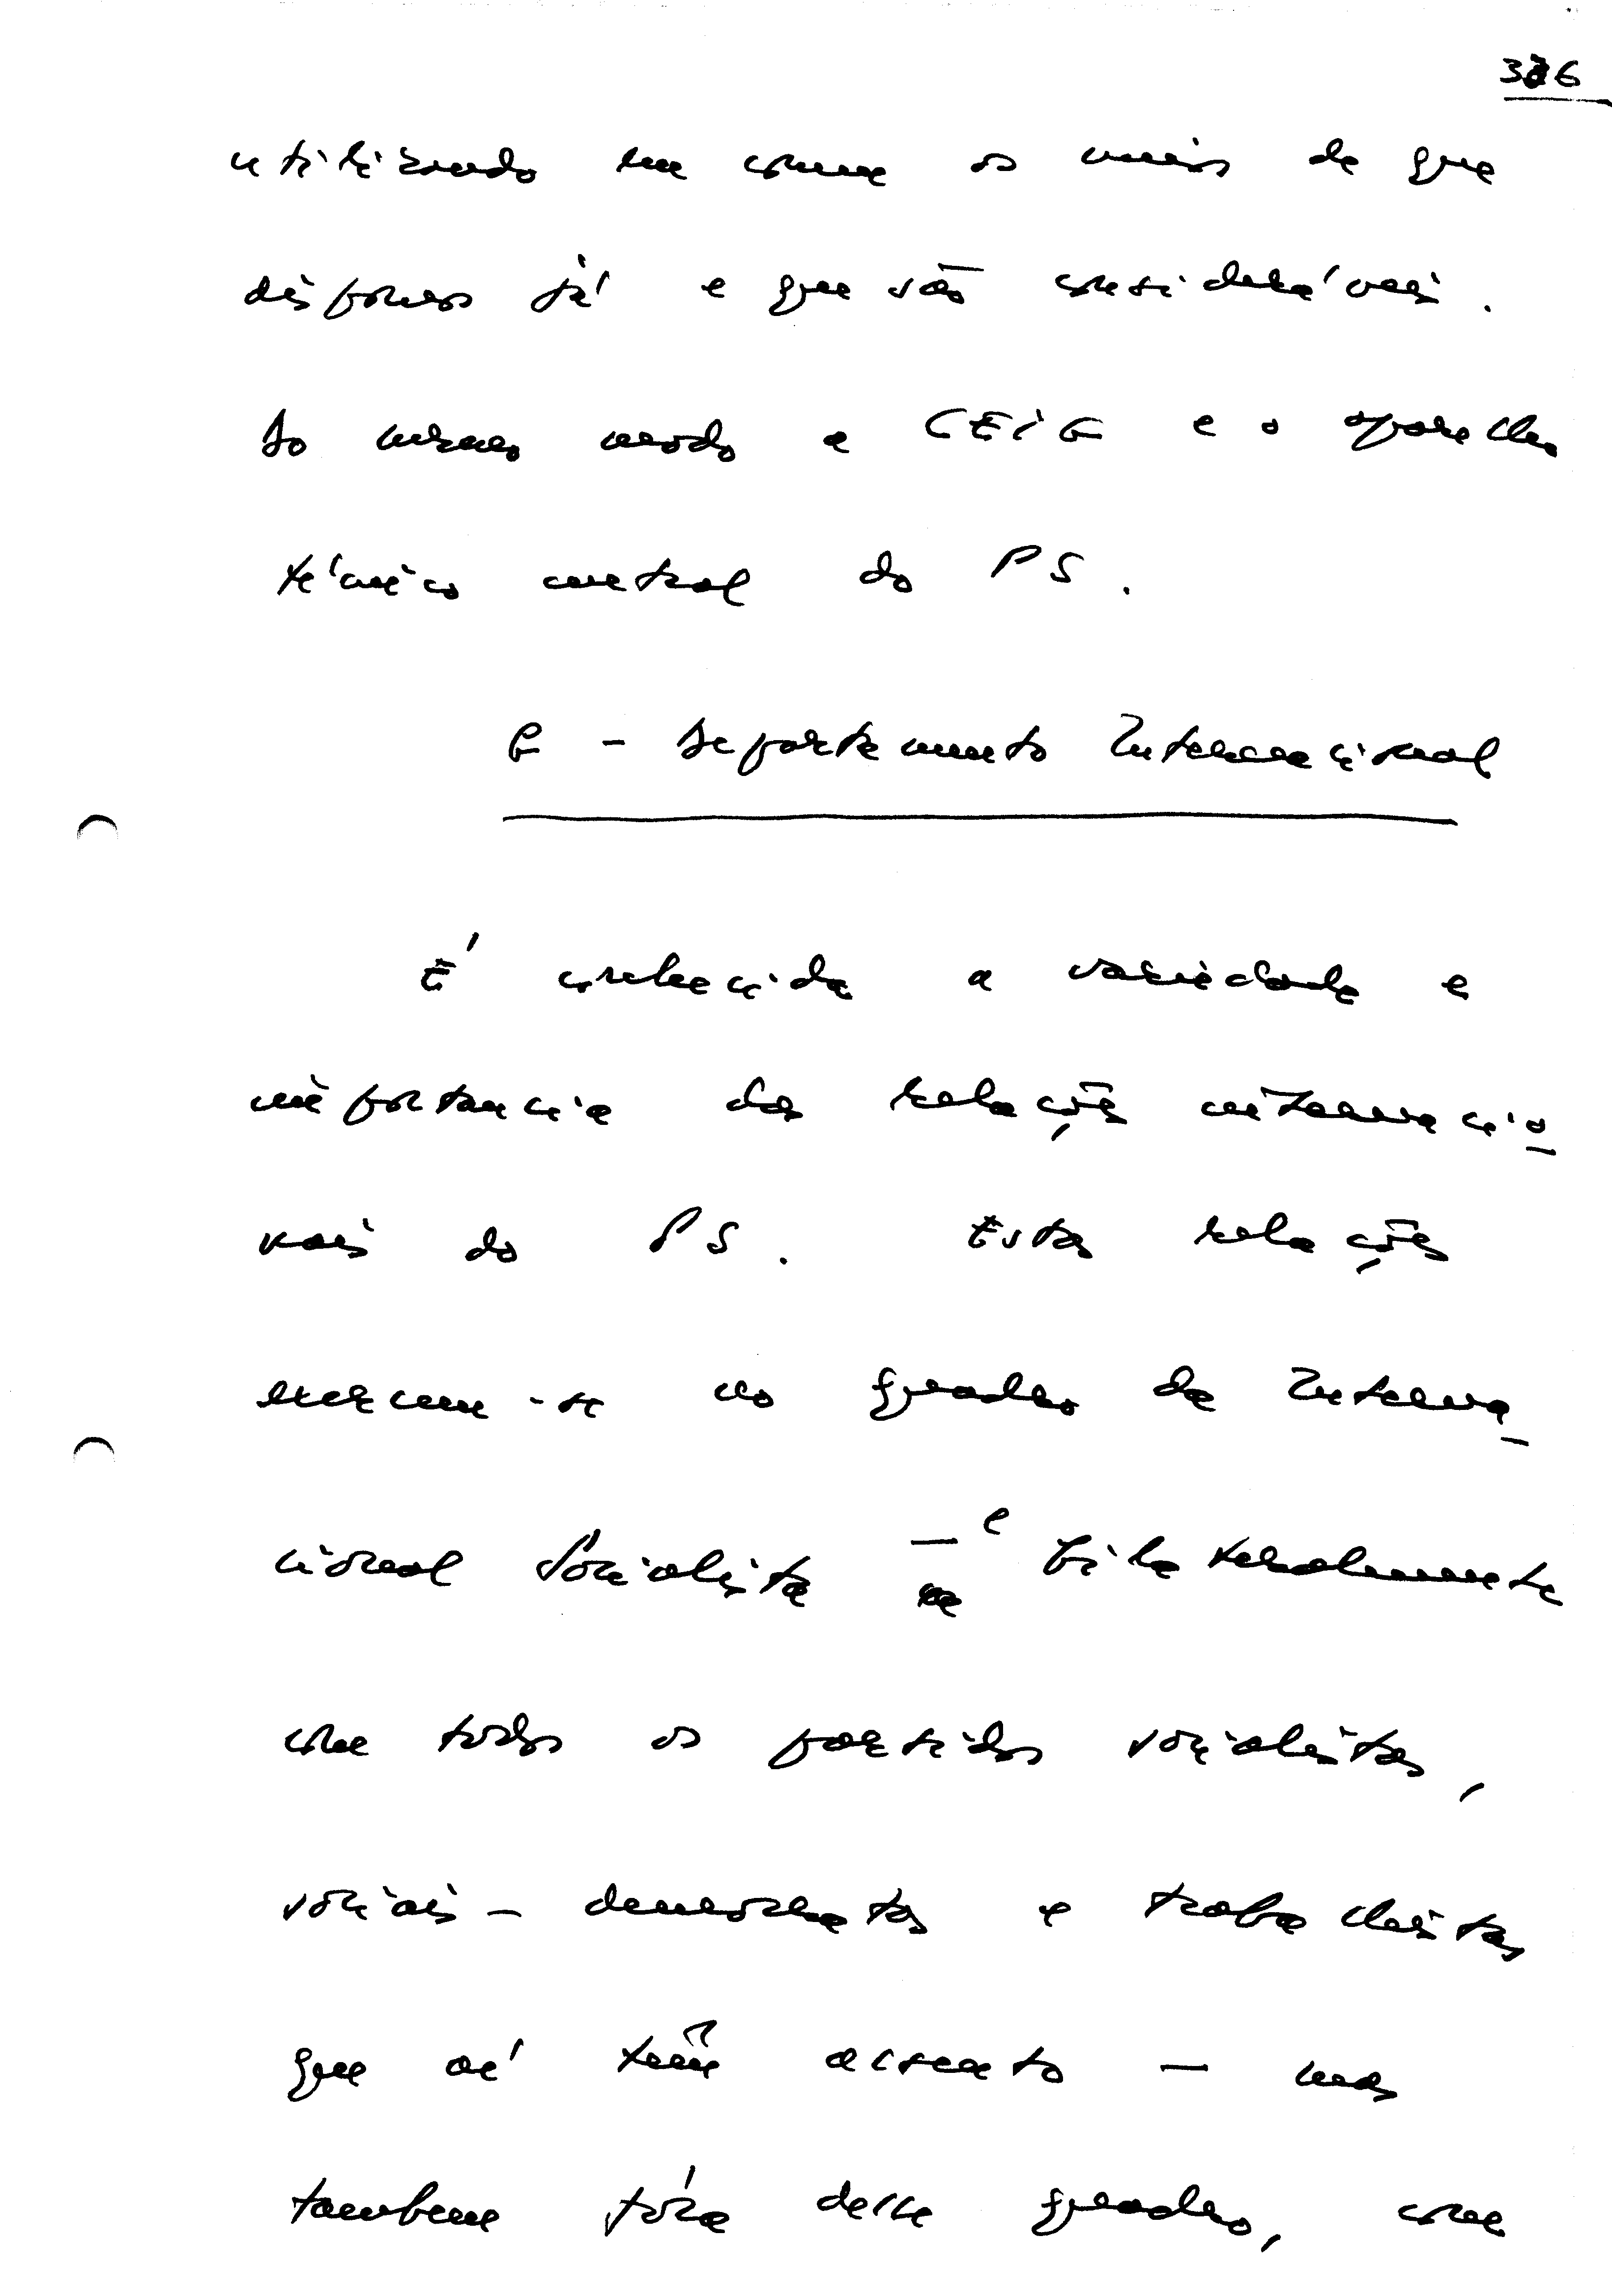 utilizando em comum os meios de que
dispomos já e que são consideráveis.
Do mesmo modo a CEIG e o aparelho
técnico central do PS.
E - Departamento Internacional
É conhecida a variedade e
importancia das relações internacio
nais do PS. Estas relações
exercem-se no quadro da Interna
cional Socialista — e bilateralmente
com todos os partidos socialistas,
sociais-democratas e trabalhistas
que aí têm assento — mas
tambem fóra desse quadro, com